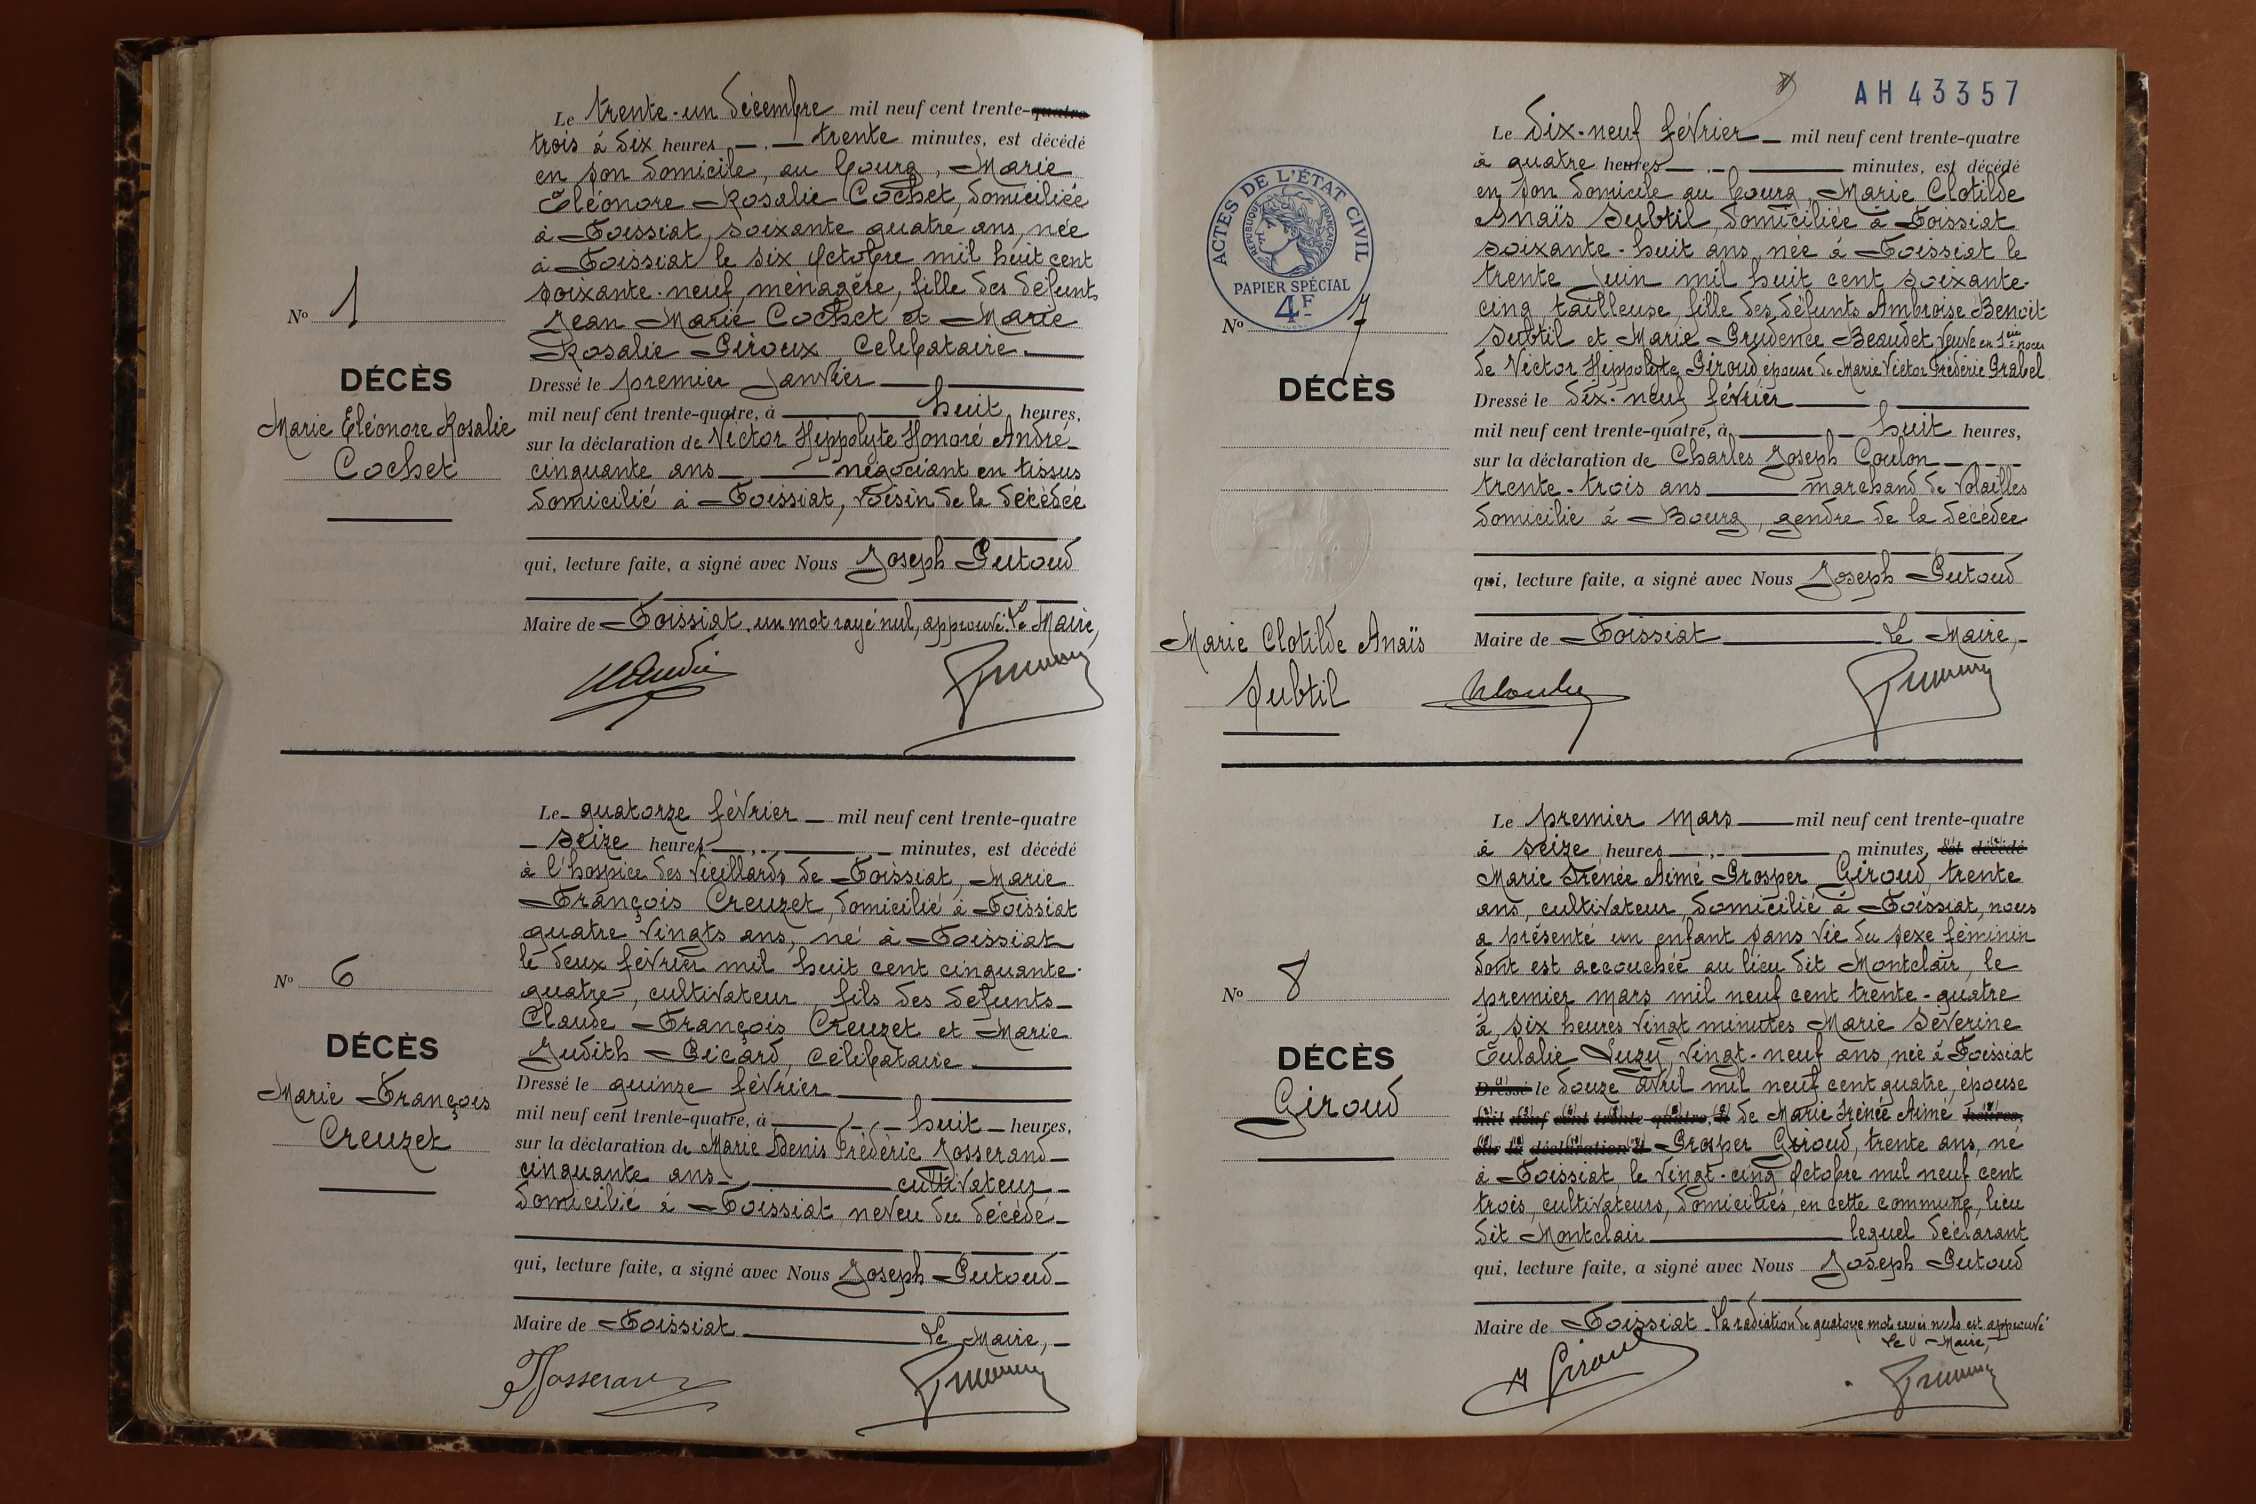 Le trente-un décembre mil neuf cent trente-quatre
trois à dix heures trente minutes, est décédé
en son domicile, au bourg, Marie
Eléonore Rosalie Cochet, domiciliée
à Foissiat, soixante quatre ans, née
à Foissiat le six octobre mil huit cent
soixante-neuf, ménagère, fille des défunts
Jean Marie Cochet et Marie
Rosalie Giroux, Célibataire.
Nº 1
DÉCÈS
Marie Eléonore Rosalie
Cochet
Dressé le premier Janvier
mil neuf cent trente-quatre, à huit heures,
sur la déclaration de Victor Hippolyte Honoré André
cinquante ans négociant en tissus
domicilié à Foissiat, voisin de la décédée
qui, lecture faite, a signé avec Nous Joseph Putoud
Maire de Foissiat. un mot rayé nul, approuvé. Le Maire,
Le quatorze février mil neuf cent trente-quatre
seize heures minutes, est décédé
à l'hospice des vieillards de Foissiat, Marie
François Creuzet, domicilié à Foissiat
quatre vingts ans, né à Foissiat
le deux février mil huit cent cinquante-
quatre, cultivateur, fils des défunts
Claude François Creuzet et Marie
Judith Picard, célibataire.
Nº 6
DÉCÈS
Marie François
Creuzet
Dressé le quinze février
mil neuf cent trente-quatre, à huit heures,
sur la déclaration de Marie Denis Frédéric Josserand
cinquante ans cultivateur
domicilié à Foissiat, neveu du décédé
qui, lecture faite, a signé avec Nous Joseph Putoud
Maire de Foissiat Le Maire,
Josserand
AH 43357
Le dix-neuf février mil neuf cent trente-quatre
à quatre heures minutes, est décédé
en son domicile au bourg, Marie Clotilde
Anaïs Subtil, domiciliée à Foissiat
soixante-huit ans, née à Foissiat le
trente Juin mil huit cent soixante-
cinq, tailleuse, fille des défunts Ambroise Benoit
Subtil et Marie Prudence Beaudet veuve en 1ères noces
de Victor Hippolyte Giroud épouse de Marie Victor Frédéric Grabel
ACTES DE L'ÉTAT CIVIL
RÉPUBLIQUE FRANÇAISE
PAPIER SPÉCIAL
4F
Nº 7
DÉCÈS
Marie Clotilde Anaïs
Subtil
Dressé le dix-neuf février
mil neuf cent trente-quatre, à huit heures,
sur la déclaration de Charles Joseph Coulon
trente-trois ans marchand de volailles
domicilié à Bourg, gendre de la décédée
qui, lecture faite, a signé avec Nous Joseph Putoud
Maire de Foissiat Le Maire,
Le premier mars mil neuf cent trente-quatre
à seize heures minutes, est décédé
Marie Irénée Aimé Prosper Giroud, trente
ans, cultivateur, domicilié à Foissiat, nous
a présenté un enfant sans vie du sexe féminin
dont est accouchée au lieu dit Montclair, le
premier mars mil neuf cent trente-quatre
à six heures vingt minutes Marie Séverine
Eulalie Luzy, vingt-neuf ans, née à Foissiat
Dressé le douze avril mil neuf cent quatre, épouse
mil neuf cent trente-quatre, à de Marie Irénée Aimé heures,
sur la déclaration de Prosper Giroud, trente ans, né
à Foissiat, le vingt-cinq octobre mil neuf cent
trois, cultivateurs, domiciliés, en cette commune, lieu
dit Montclair lequel déclarant
Nº 8
DÉCÈS
Giroud
qui, lecture faite, a signé avec Nous Joseph Putoud
Maire de Foissiat. La radiation de quatorze mots rayés nuls est approuvé
Le Maire,
Giroud